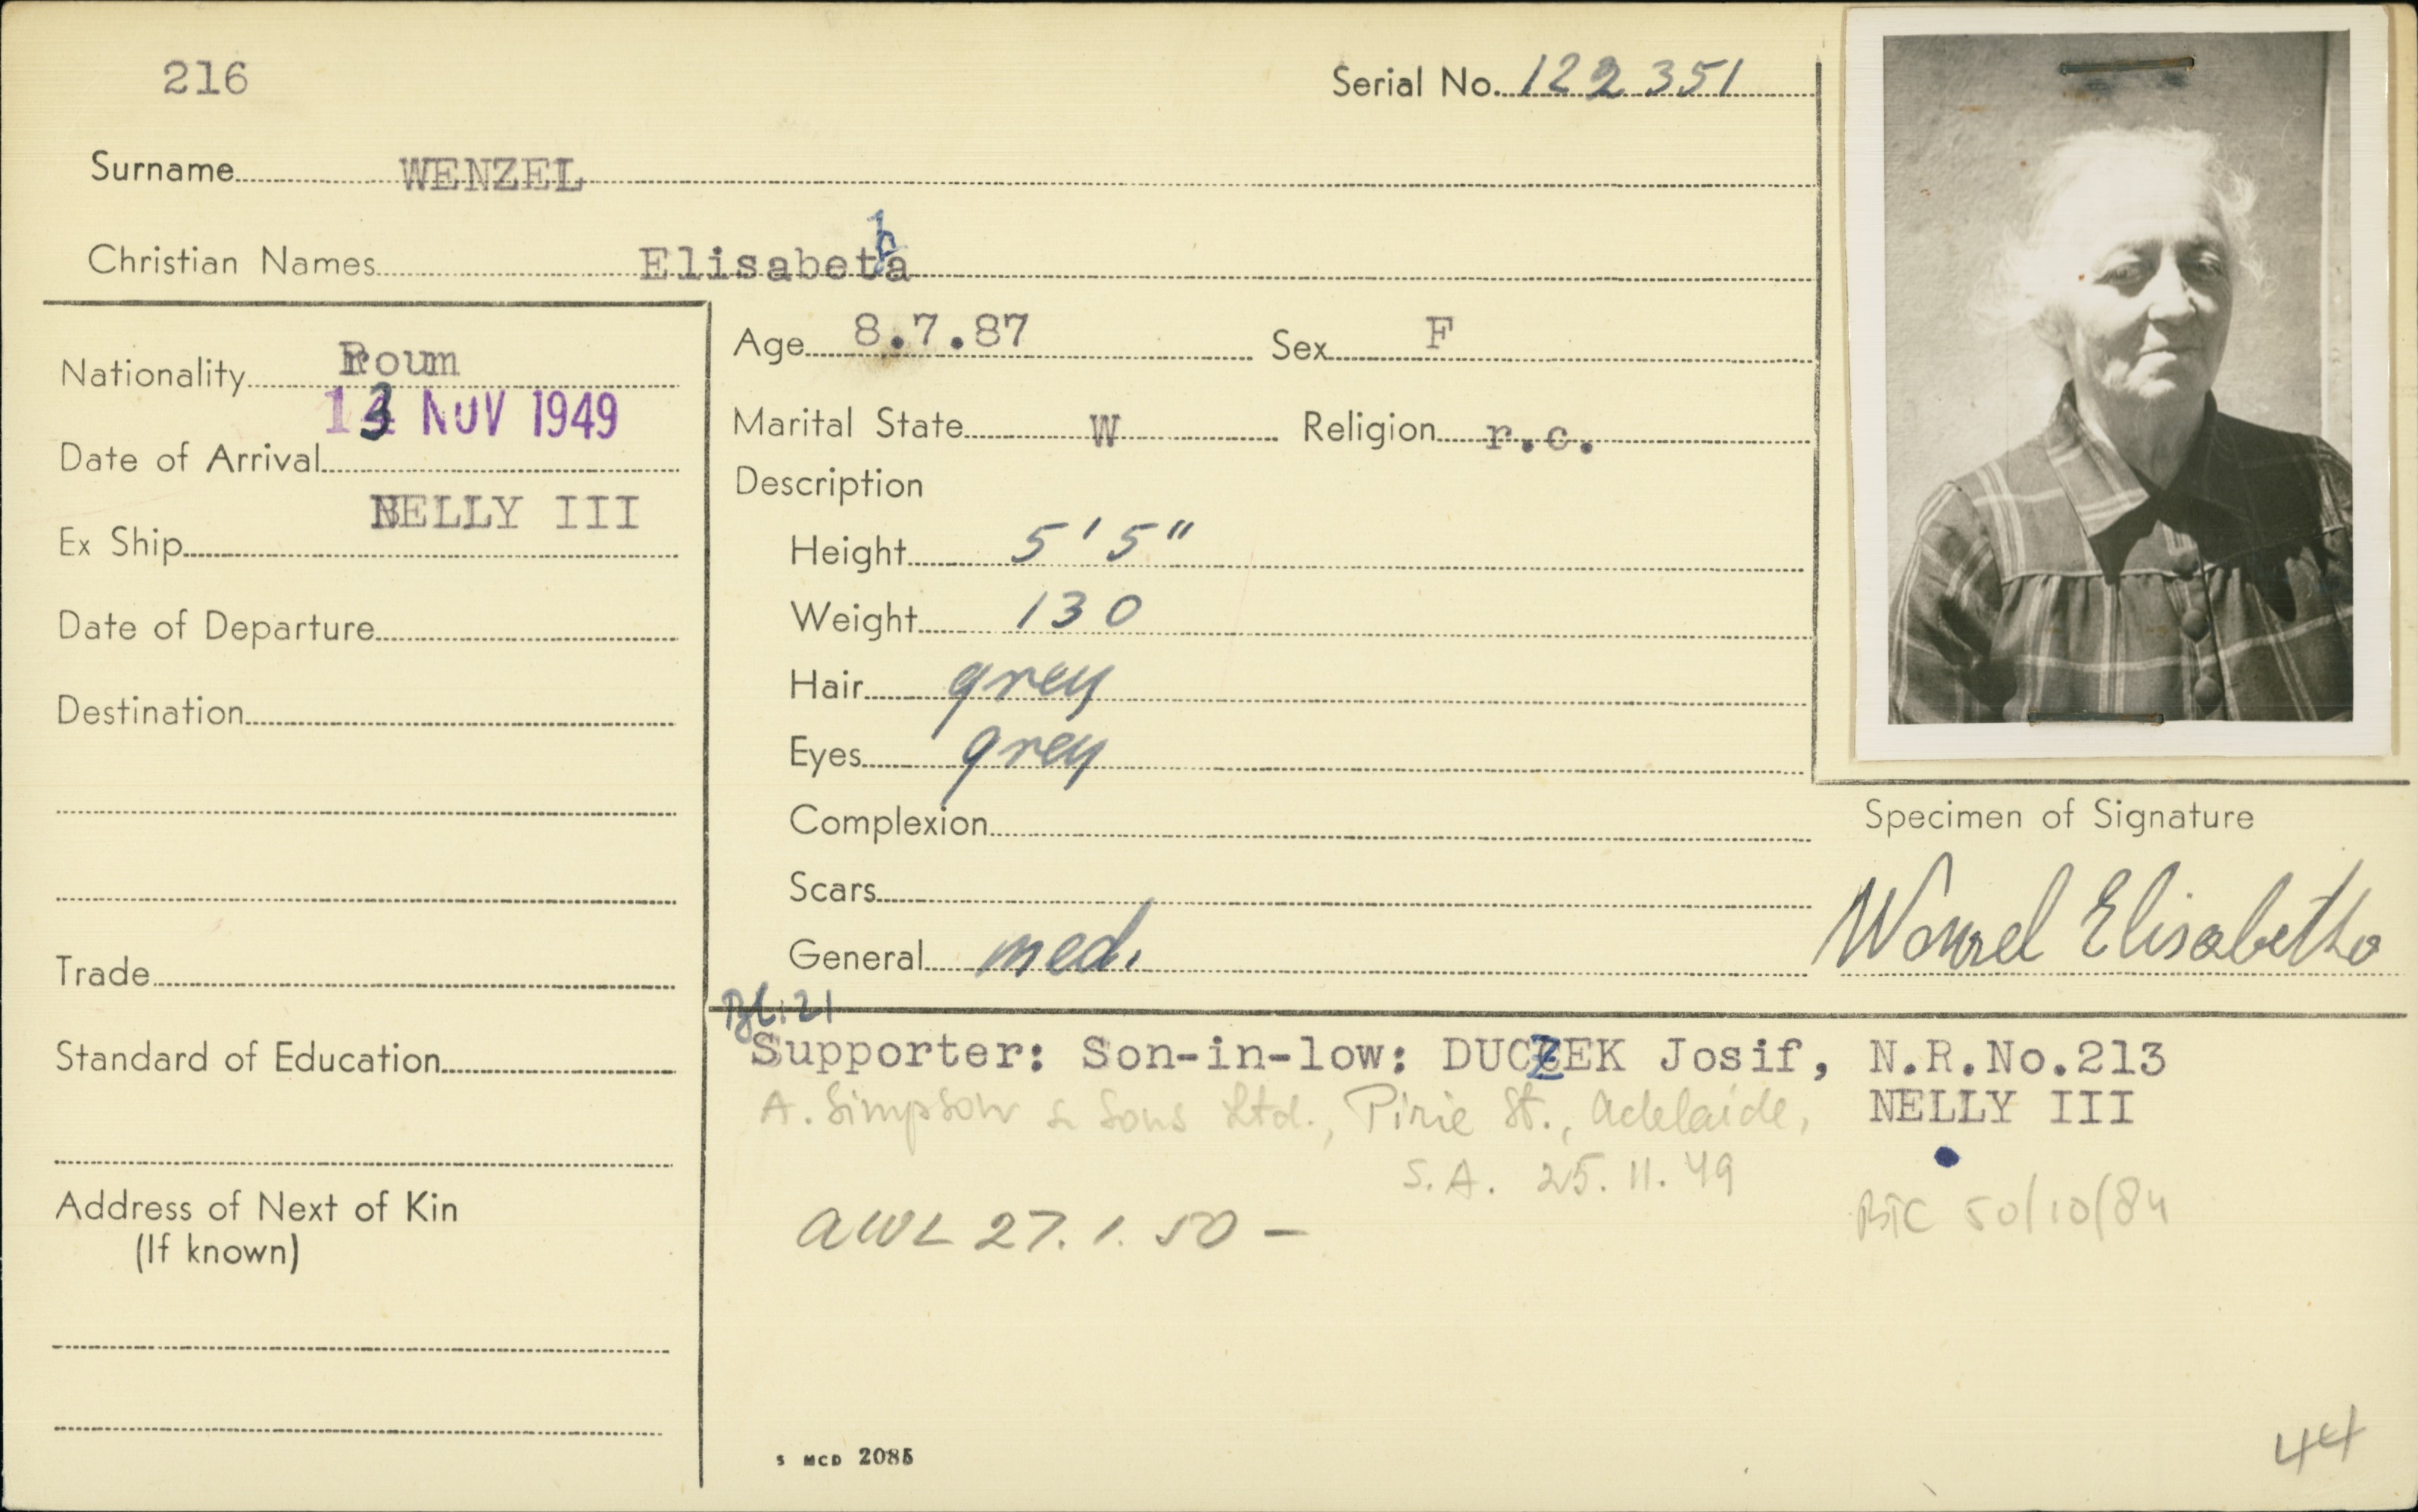 216
Serial No. 122351
Surname WENZEL
Christian Names Elisabetha
Nationality Roum
13 NOV 1949
Date of Arrival
NELLY III
Ex Ship
Date of Departure
Destination
Trade
Standard of Education
Address of Next of Kin
(If known)
Age 8.7.87 Sex F
Marital State W Religion r.c.
Description
Height 5'5"
Weight 130
Hair grey
Eyes grey
Complexion
Scars
General med.
Specimen of Signature
Wenzel Elisabetha
Bl: 21
Supporter: Son-in-low: DUCZEK Josif, N.R.No.213
NELLY III
A. Simpson & Sons Ltd., Pirie St., Adelaide,
S.A. 25.11.49
AWL 27.1.50 –
50/10/84
S MCD 2085
44